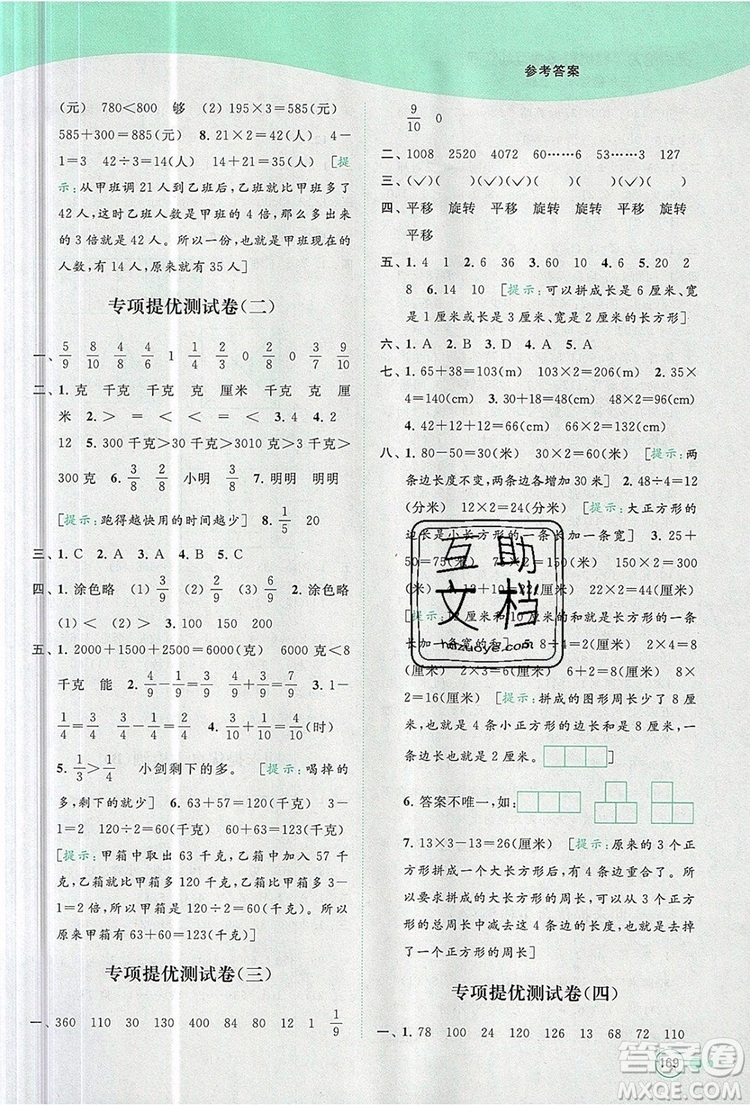 参考答案
(元) 780<800 够 (2) 195×3=585(元)
585+300=885(元) 8. 21×2=42(人) 4-
1=3 42÷3=14(人) 14+21=35(人) [提
示:从甲班调 21 人到乙班后,乙班就比甲班多了
42 人,这时乙班人数是甲班的 4 倍,那么多出来
的 3 倍就是 42 人。所以一份,也就是甲班现在的
人数,有 14 人,原来就有 35 人]
专项提优测试卷(二)
一、5/9 8/10 4/8 4/6 1 1/4 2/3 0 2/8 0 3/7 9/10
二、1. 克 千克 千克 克 厘米 千克 千克 厘
米 2. > = < < = < 3. 3/8 4. 2
12 5. 300 千克>30 千克>3010 克>3 千克>
300 克 6. 2/8 3/8 小明 3/8 7. 明明 明明
[提示:跑得越快用的时间越少] 8. 1/5 20
三、1. C 2. A 3. A 4. C 5. B
四、1. 涂色略
(1) < (2) > 3. 100 150 200
五、1. 2000+1500+2500=6000(克) 6000 克<8
千克 能 2. 4/9-1/9=3/9 4/9+3/9=7/9 3. 1-
1/4=3/4 3/4-1/4=2/4 4. 3/10+4/10=7/10(时)
5. 1/3>1/8 小剑剩下的多。[提示:喝掉的
多,剩下的就少] 6. 63+57=120(千克) 3-
1=2 120÷2=60(千克) 60+63=123(千克)
[提示:甲箱中取出 63 千克,乙箱中加入 57 千
克,乙箱就比甲箱多了 120 千克,这 120 千克是
3-1=2 倍,所以一份是 120÷2=60(千克)。所以
原来甲箱有 63+60=123(千克)]
专项提优测试卷(三)
一、360 110 30 130 70 900 80 12 1 1/9
9/10 0
二、1008 2520 4072 60……6 53……3 127
三、(✓)(✓)( )(✓)( )(✓)(✓)
四、平移 旋转 平移 旋转 平移 平移 旋转
平移
五、1. 4 1 2. 6 36 3. 60 10 4. 6 5. 8 2
8 6. 14 10 [提示:可以拼成长是 6 厘米、宽
是 1 厘米或长是 3 厘米、宽是 2 厘米的长方形]
六、1. A 2. B 3. A 4. A 5. A
七、1. 65+38=103(m) 103×2=206(m) 2. 35×
4=140(cm) 3. 40+10=50(m) 50×2=100(m)
4. 42+12+12=66(cm) 66×2=132(cm)
八、1. 80-50=30(米) 30×2=60(米) [提示:两
条边长度不变,两条边各增加 30 米] 2. 48÷4=12
(分米) 12×2=24(分米) [提示:大正方形的
边长是小长方形的一条长加一条宽] 3. 25+
(厘米)
[提示:长方形的长和宽的和就是长方形的一条
长加一条宽的和]
[提示:拼成的图形周长是 8 厘
米,也就是 4 条小正方形的边长和是 8 厘米,一
条边长也就是 2 厘米]
6. 答案不唯一,如:
7. 13×3-13=26(厘米) [提示:原来的 3 个正
方形拼成一个大长方形后,有 4 条边重合了。所
以要求拼成的大长方形的周长,可以用原来的 3
个周长的和减去这 4 条边的长度,也就等于减
去了一个正方形的周长]
专项提优测试卷(四)
一、1. 78 100 24 120 13 68 72 110
互助
文档
169
答案圈
MXQE.COM